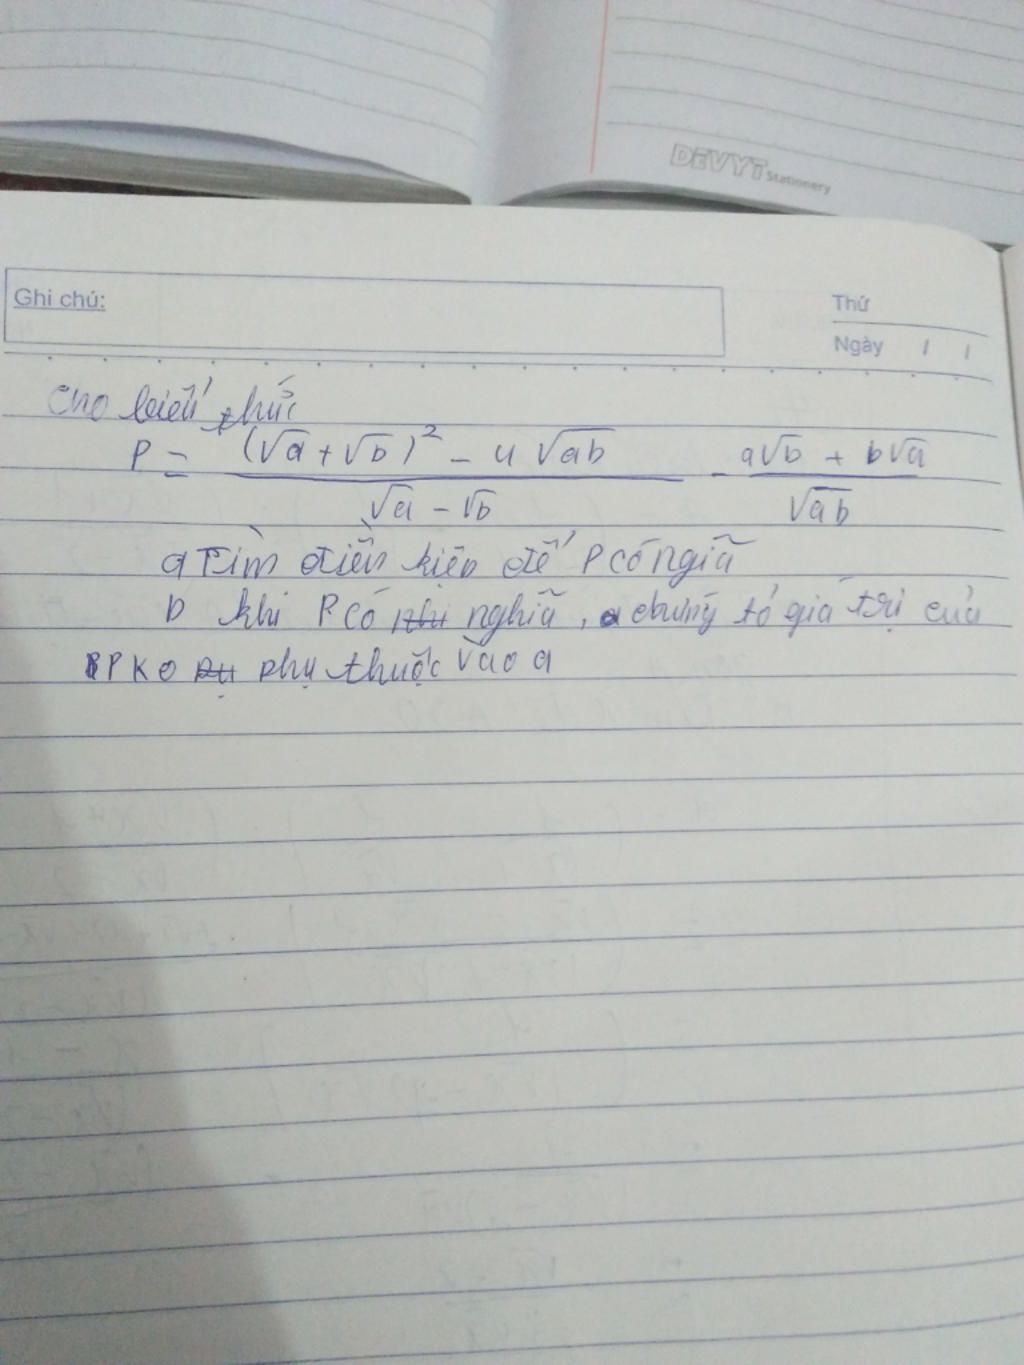 DEVYT Stationery
Ghi chú:
Thứ
Ngày / /
Cho biểu thức
P = \frac{(√a + √b)² - 4√ab}{√a - √b} - \frac{a√b + b√a}{√ab}
a Tìm điều kiện để P có ngiã
b khi P có nghiã, chứng tỏ giá trị của
P ko phụ thuộc vào a